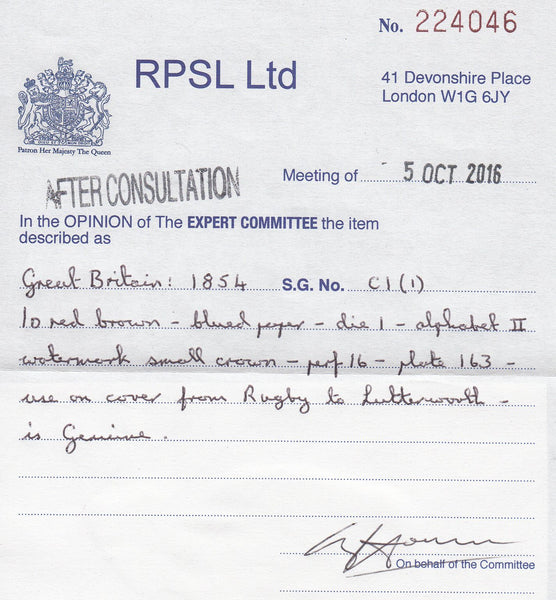 No. 224046
RPSL Ltd
41 Devonshire Place
London W1G 6JY
Patron Her Majesty The Queen
AFTER CONSULTATION
Meeting of 5 OCT 2016
In the OPINION of The EXPERT COMMITTEE the item
described as
Great Britain: 1854 S.G. No. C1(1)
1d red brown - blued paper - die 1 - alphabet II
watermark small crown - perf 16 - plate 163 -
use on cover from Rugby to Lutterworth -
is Genuine.
On behalf of the Committee